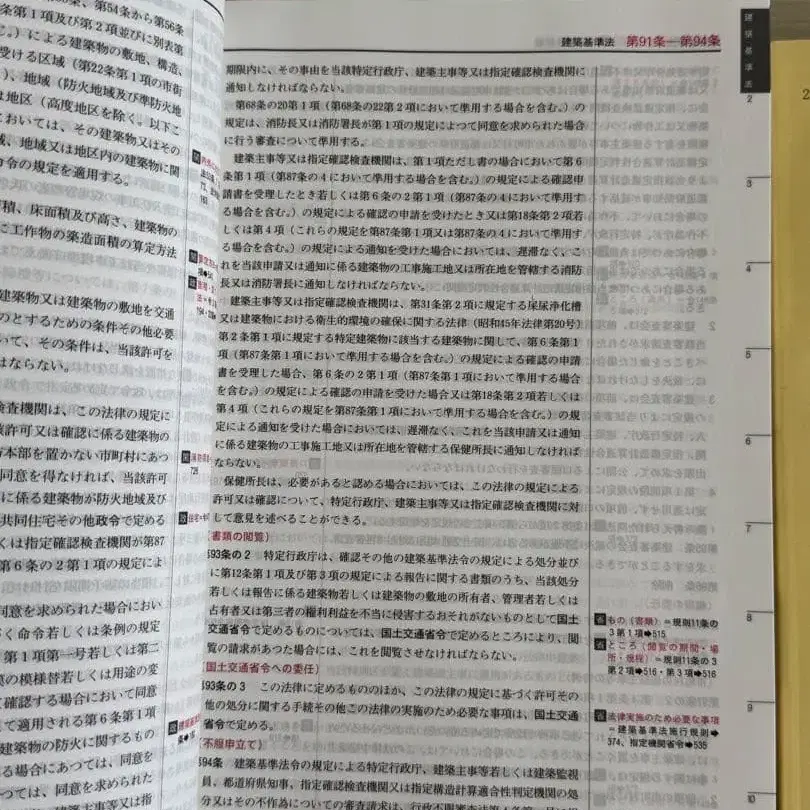 、第54条から第56条
条第1項及び第2項並びに別表第
）による建築物の敷地、構造、
受ける区域（第22条第1項の市街
）、地域（防火地域及び準防火地
は地区（高度地区を除く。以下こ
おいては、その建築物又はその
域、地域又は地区内の建築物に関
の規定を適用する。
積、床面積及び高さ、建築物の
に工作物の築造面積の算定方法
建築物又は建築物の敷地を交通
のとするための条件その他必要
いて、その条件は、当該許可を
はならない。
検査機関は、この法律の規定に
該許可又は確認に係る建築物の
本部を置かない市町村にあつ
同意を得なければ、当該許可
に係る建築物が防火地域及び
共同住宅その他政令で定める
くは指定確認検査機関が第87
第6条の2第1項の規定によ
同意を求められた場合におい
く命令若しくは条例の規定
第1項第一号若しくは第二
の模様替若しくは用途の変
て確認する場合において同意
て適用される第6条第1項
建築物の防火に関するもの
にあつては、同意を
つては、同意を求められた
建築主事等又は指
建築基準法 第91条―第94条
期限内に、その事由を当該特定行政庁、建築主事等又は指定確認検査機関に
通知しなければならない。
第68条の20第1項（第68条の22第2項において準用する場合を含む。）の
規定は、消防長又は消防署長が第1項の規定によつて同意を求められた場合
に行う審査について準用する。
建築主事等又は指定確認検査機関は、第1項ただし書の場合において第6
条第1項（第87条の4において準用する場合を含む。）の規定による確認申
請書を受理したとき若しくは第6条の2第1項（第87条の4において準用す
る場合を含む。）の規定による確認の申請を受けたとき又は第18条第2項若
しくは第4項（これらの規定を第87条第1項又は第87条の4において準用す
る場合を含む。）の規定による通知を受けた場合においては、遅滞なく、こ
れを当該申請又は通知に係る建築物の工事施工地又は所在地を管轄する消防
長又は消防署長に通知しなければならない。
建築主事等又は指定確認検査機関は、第31条第2項に規定する屎尿浄化槽
又は建築物における衛生的環境の確保に関する法律（昭和45年法律第20号）
第2条第1項に規定する特定建築物に該当する建築物に関して、第6条第1
項（第87条第1項において準用する場合を含む。）の規定による確認の申請
書を受理した場合、第6条の2第1項（第87条第1項において準用する場合
を含む。）の規定による確認の申請を受けた場合又は第18条第2項若しくは
第4項（これらの規定を第87条第1項において準用する場合を含む。）の規
定による通知を受けた場合においては、遅滞なく、これを当該申請又は通知
に係る建築物の工事施工地又は所在地を管轄する保健所長に通知しなければ
ならない。
保健所長は、必要があると認める場合においては、この法律の規定による
許可又は確認について、特定行政庁、建築主事等又は指定確認検査機関に対
して意見を述べることができる。
（書類の閲覧）
93条の2 特定行政庁は、確認その他の建築基準法令の規定による処分並び
に第12条第1項及び第3項の規定による報告に関する書類のうち、当該処分
若しくは報告に係る建築物若しくは建築物の敷地の所有者、管理者若しくは
占有者又は第三者の権利利益を不当に侵害するおそれがないものとして国土
交通省令で定めるものについては、国土交通省令で定めるところにより、閲
覧の請求があつた場合には、これを閲覧させなければならない。
（国土交通省令への委任）
93条の3 この法律に定めるもののほか、この法律の規定に基づく許可その
他の処分に関する手続その他この法律の実施のため必要な事項は、国土交通
省令で定める。
（不服申立て）
94条 建築基準法令の規定による特定行政庁、建築主事等若しくは建築監視
員、都道府県知事、指定確認検査機関又は指定構造計算適合性判定機関の処
分又はその不作為についての審査請求は、行政不服審査法
省 もの（書類）＝規則11条の
3第1項➡515
省 ところ（閲覧の期間・場
所・規程）＝規則11条の3
第2項➡516・第3項➡516
省 法律実施のため必要な事項
＝建築基準法施行規則➡
374、指定機関省令➡535
建築基準法
2
3
4
5
6
7
8
9
10
2